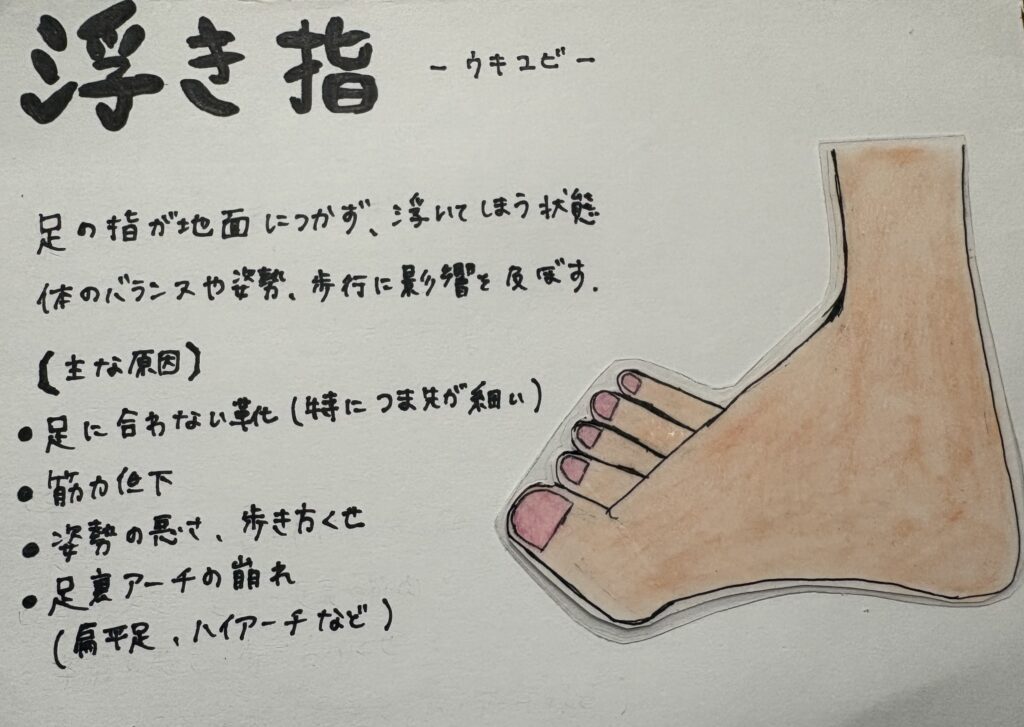 浮き指 -ウキユビ-
足の指が地面につかず、浮いてしまう状態
体のバランスや姿勢、歩行に影響を及ぼす.
【主な原因】
•足に合わない靴(特につま先が細い)
•筋力低下
•姿勢の悪さ、歩き方くせ
•足裏アーチの崩れ
(扁平足、ハイアーチなど)